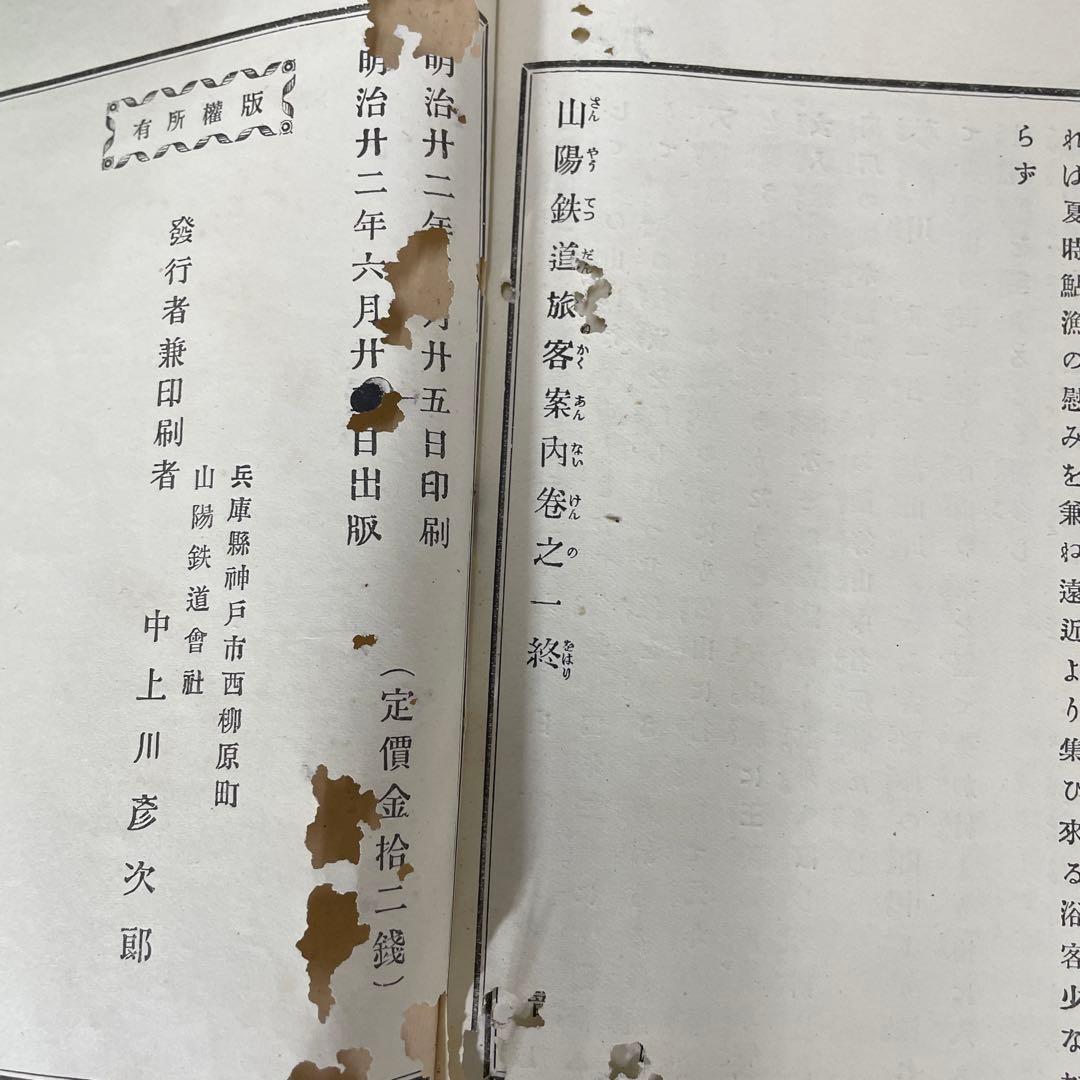 れは夏時鮎漁の慰みを兼ね遠近より集ひ來る浴客少な
らず
山陽鉄道旅客案內卷之一終
さんやうてつだん かくあんないけんのをはり
明治廿二年 月廿五日印刷
明治廿二年六月廿 日出版
(定價金拾二錢)
兵庫縣神戸市西柳原町
山陽鉄道會社
發行者兼印刷者 中上川彥次郎
版權所有